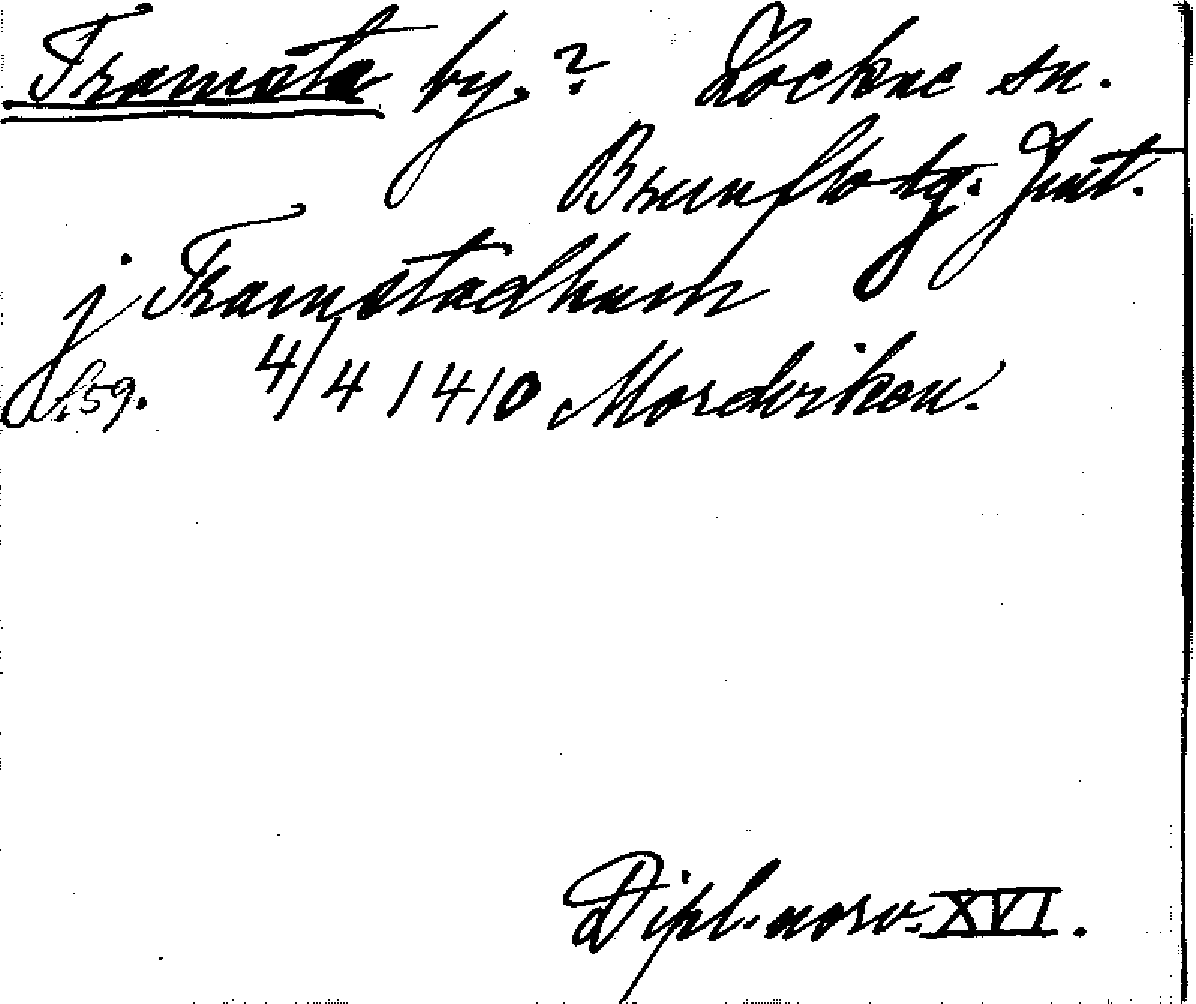 Tramsta by.? Lockne sn.
Brunflo tg. Jmt.
j Tramstadhum
af. 59. 4/4 1410 Mordviken.
Dipl. norv. XVI.